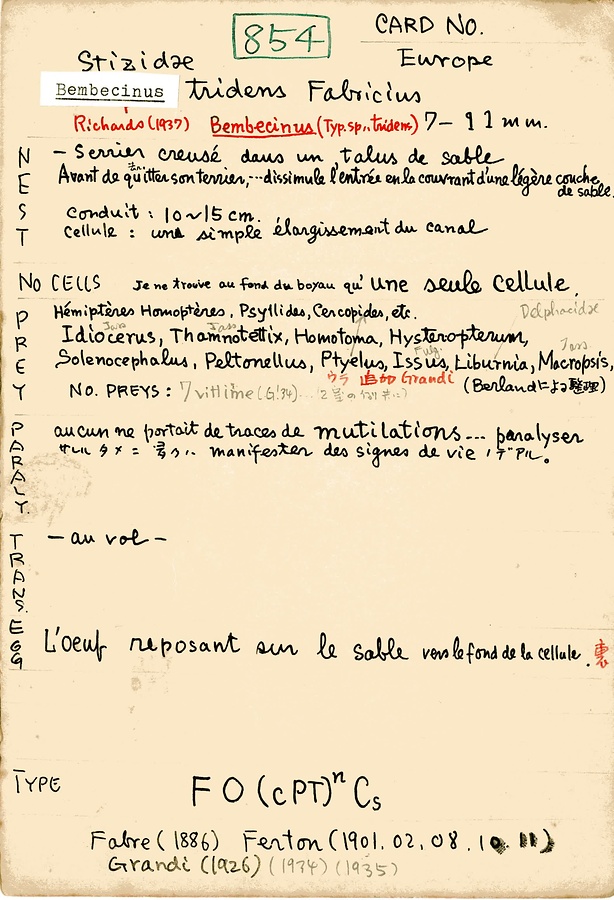 854
CARD NO.
Stizidae Europe
Bembecinus tridens Fabricius
Richards (1937) Bembecinus (Typ.sp., tridens) 7-11mm.
NEST
- Terrier creusé dans un talus de sable
Avant de quitter son terrier, ... dissimule l'entrée en la couvrant d'une légère couche de sable.
Conduit : 10~15 cm.
Cellule : une simple élargissement du canal
NO CELLS Je ne trouve au fond du boyau qu'une seule cellule.
PREY
Hémiptères Homoptères, Psyllides, Cercopides, etc.
Delphacidae
Jass. Jass.
Idiocerus, Thamnotettix, Homotoma, Hysteropterum,
Fulg. Jass.
Solenocephalus, Peltonellus, Ptyelus, Issus, Liburnia, Macropsis,
ウラ 追加 Grandi (Berlandによる整理)
NO. PREYS : 7 vittime (G.'34)...
PARALY.
aucun ne portait de traces de mutilations... paralyser
manifester des signes de vie デアル。
TRANS.
- au vol -
EGG
L'oeuf reposant sur le sable vers le fond de la cellule. 裏
TYPE
F O (cPT)ⁿ Cs
Fabre (1886) Ferton (1901. 02. 08. 10. 11)
Grandi (1926) (1934) (1935)